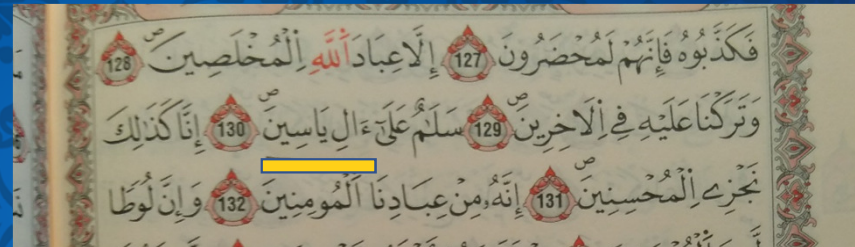 فَكَذَّبُوهُ فَإِنَّهُمْ لَمُحْضَرُونَ 127 إِلَّا عِبَادَ اَللَّهِ اِلْمُخْلَصِينَ ص 128
وَتَرَكْنَا عَلَيْهِ فِي اِلَاخِرِينَ ص 129 سَلَٰمٌ عَلَىٰٓ ءَالِ يَاسِينَ ص 130 إِنَّا كَذَٰلِكَ
نَجْزِے اِلْمُحْسِنِينَ ص 131 إِنَّهُۥ مِنْ عِبَادِنَا اَلْمُومِنِينَ 132 وَإِنَّ لُوطاٗ